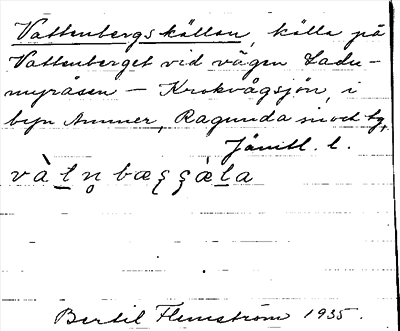 Vattenbergskällan, källa på
Vattenberget vid vägen Ladu-
myråsen – Krokvågsjön, i
byn Ammer, Ragunda sn och tg,
Jämtl. l.
Bertil Flemström 1935.